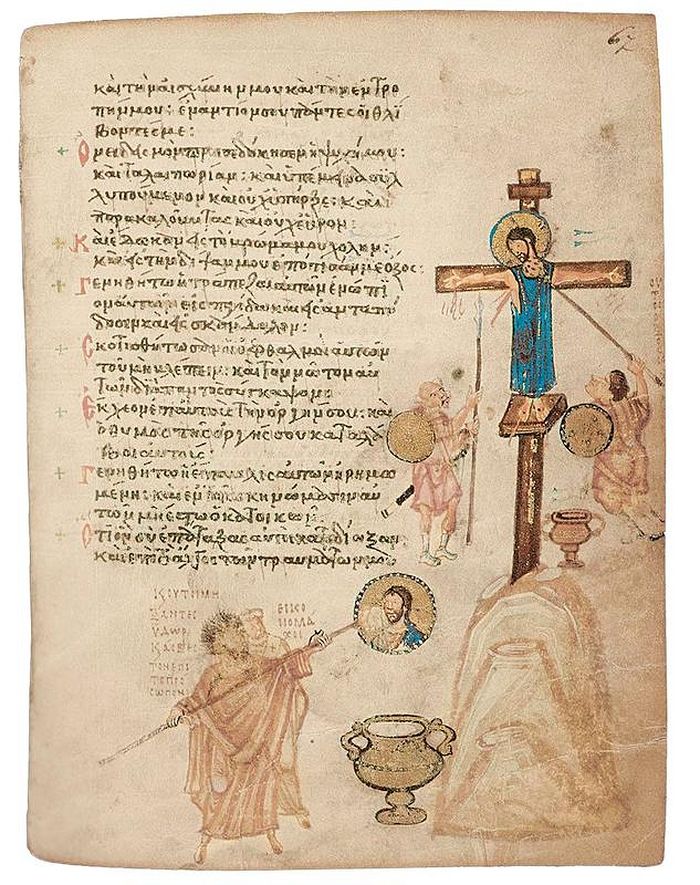 67
καὶ τὴν αἰσχύνην μου καὶ τὴν ἐντρο
πήν μου· ἐναντίον σου πάντες οἱ θλί
βοντές με:
Ὀνειδισμὸν προσεδόκησεν ἡ ψυχή μου:
καὶ ταλαιπωρίαν: καὶ ὑπέμεινα συλ
λυπούμενον καὶ οὐχ ὑπῆρξε: καὶ
παρακαλοῦντας καὶ οὐχ εὗρον:
Καὶ ἔδωκαν εἰς τὸ βρῶμα μου χολήν:
καὶ εἰς τὴν δίψαν μου ἐπότισάν με ὄξος:
Γενηθήτω ἡ τράπεζα αὐτῶν ἐνώπι
ον αὐτῶν εἰς παγίδα καὶ εἰς ἀνταπό
δοσιν καὶ εἰς σκάνδαλον:
Σκοτισθήτωσαν οἱ ὀφθαλμοὶ αὐτῶν
τοῦ μὴ βλέπειν: καὶ τὸν νῶτον αὐ
τῶν διὰ παντὸς σύγκαμψον
Ἔκχεον ἐπ αὐτοὺς τὴν ὀργήν σου: καὶ
ὁ θυμὸς τῆς ὀργῆς σου καταλά
βοι αὐτούς:
Γενηθήτω ἡ ἔπαυλις αὐτῶν ἠρημω
μένη: καὶ ἐν τοῖς σκηνώμασιν αὐ
τῶν μὴ ἔστω ὁ κατοικῶν:
Ὅτι ὃν σὺ ἐπάταξας αὐτοὶ κατεδίωξαν:
καὶ ἐπὶ τὸ ἄλγος τῶν τραυμάτων μου
Κ ΟΥΤΟΙ ΜΙ
ΞΑΝΤΕΣ
ΥΔΩΡ
ΚΑΙ ΑΣΒΕ
ΤΟΝ ΕΠΙ
ΤΟ ΠΡΟΣ
ΩΠΟΝ
ΕΙΚΟ
ΝΟΜΑ
ΧΟΙ